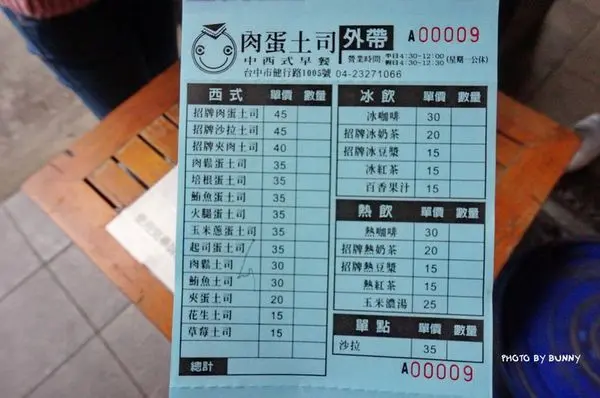 肉蛋土司
外帶
A00009
中西式早餐
營業時間
平日4:30-12:00 (星期一公休)
假日4:30-12:30
台中市健行路1005號 04-23271066
西式 單價 數量
招牌肉蛋土司 45
招牌沙拉土司 45
招牌夾肉土司 40
肉鬆蛋土司 35
培根蛋土司 35
鮪魚蛋土司 35
火腿蛋土司 35
玉米蔥蛋土司 35
起司蛋土司 35
肉鬆土司 30
鮪魚土司 30
夾蛋土司 20
花生土司 15
草莓土司 15
總計
冰飲 單價 數量
冰咖啡 30
招牌冰奶茶 20
招牌冰豆漿 15
冰紅茶 15
百香果汁 15
熱飲 單價 數量
熱咖啡 30
招牌熱奶茶 20
招牌熱豆漿 15
熱紅茶 15
玉米濃湯 25
單點 單價 數量
沙拉 35
A00009
PHOTO BY BUNNY